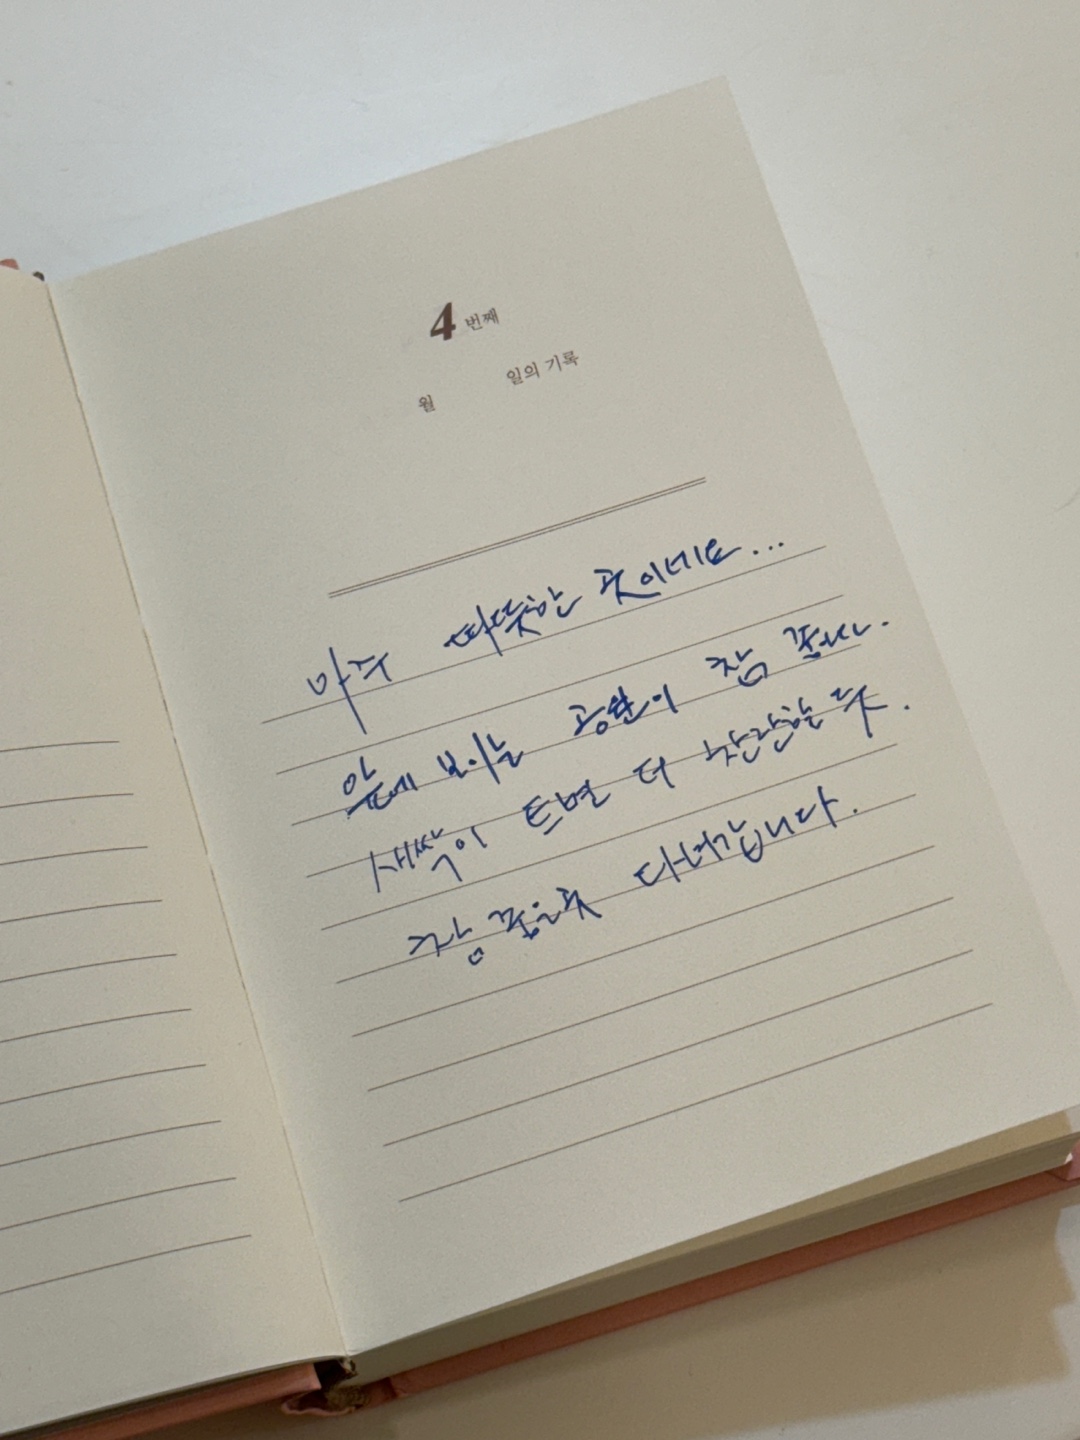 4 번째
월 일의 기록
아주 따뜻한 곳이네요...
앞에 보이는 공원이 참 좋네.
새싹이 트면 더 찬란할 듯.
참 좋은곳 다녀갑니다.